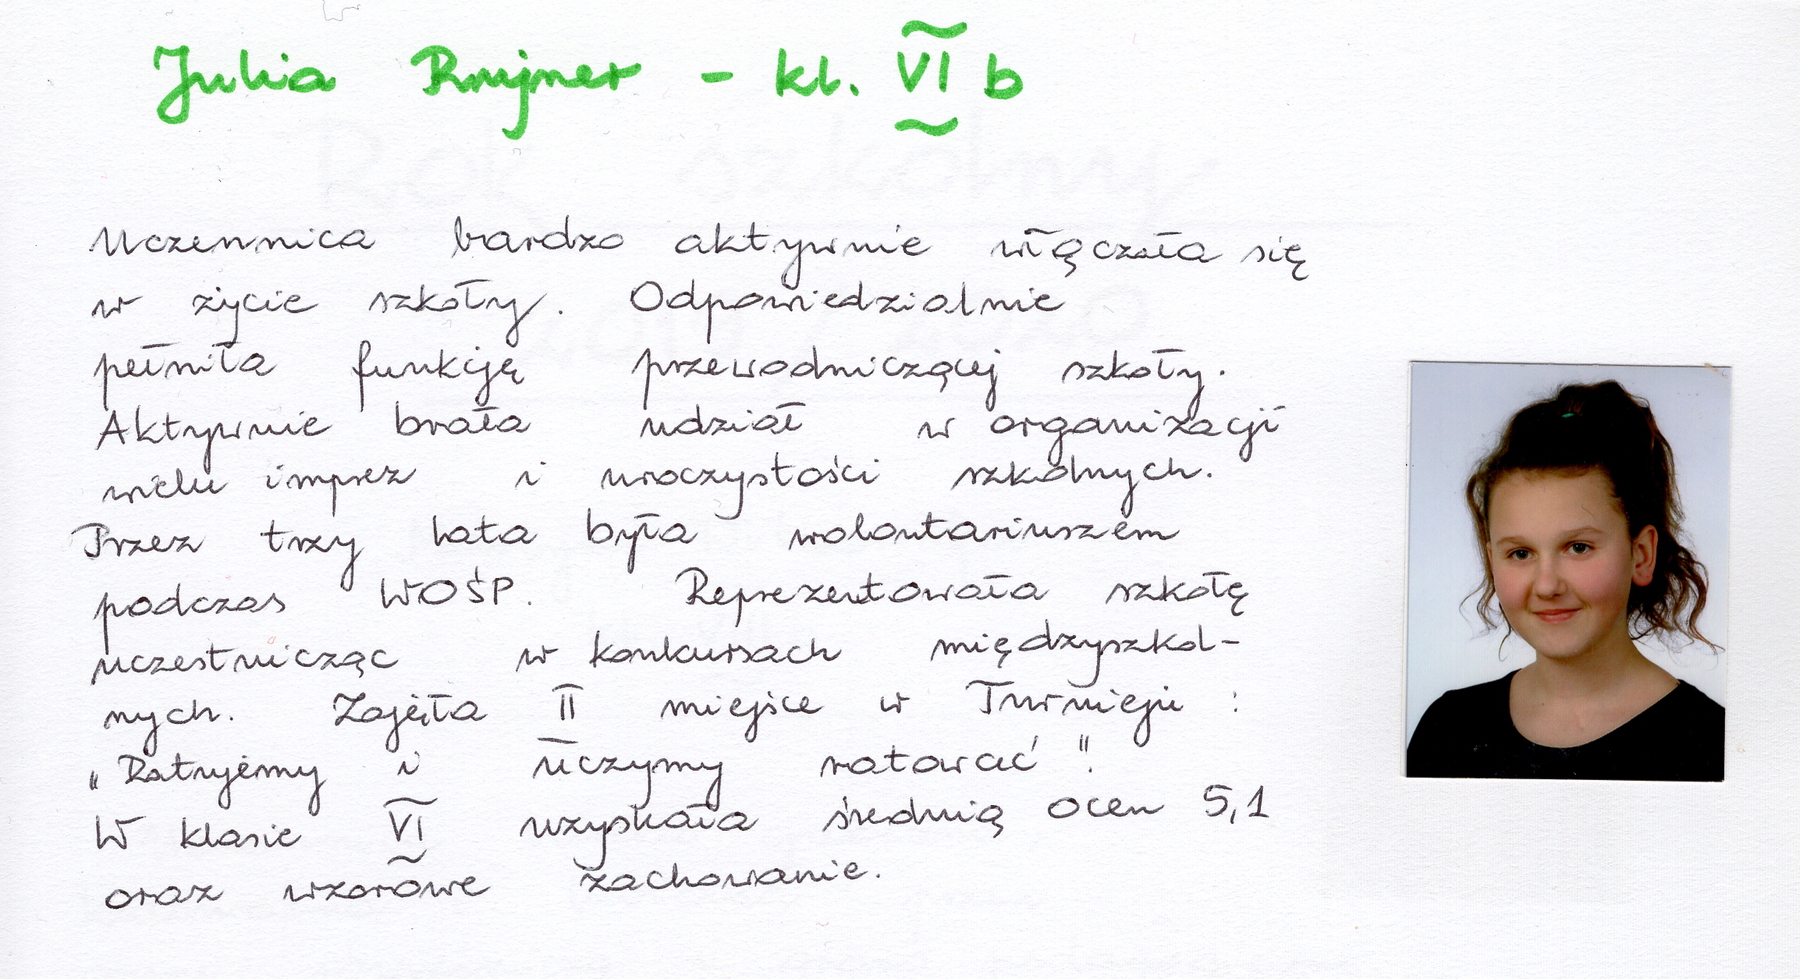 Julia Rnyjner - kl. VI b
Uczennica bardzo aktywnie włączała się
w życie szkoły. Odpowiedzialnie
pełniła funkcję przewodniczącej szkoły.
Aktywnie brała udział w organizacji
wielu imprez i uroczystości szkolnych.
Przez trzy lata była wolontariuszem
podczas WOŚP. Reprezentowała szkołę
uczestnicząc w konkursach międzyszkol-
nych. Zajęła II miejsce w Turnieju :
„Ratujemy i uczymy ratować".
W klasie VI uzyskała średnią ocen 5,1
oraz wzorowe zachowanie.